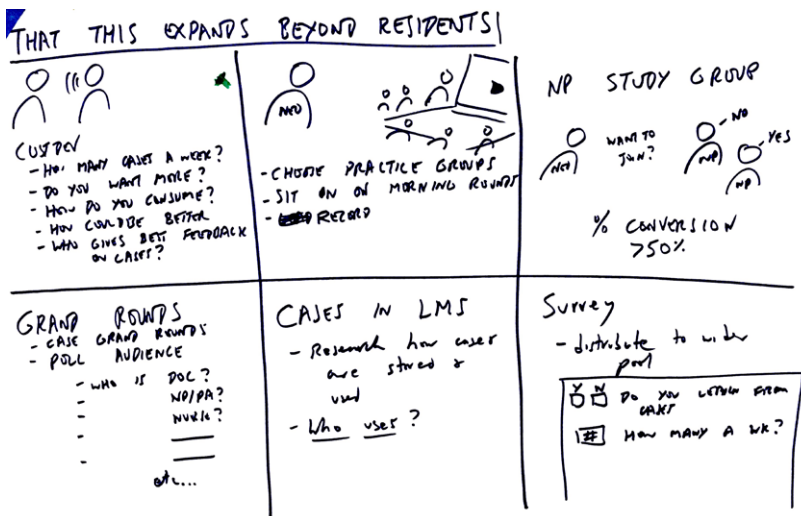 THAT THIS EXPANDS BEYOND RESIDENTS
CUSTDEV
- HOW MANY CASES A WEEK?
- DO YOU WANT MORE?
- HOW DO YOU CONSUME?
- HOW COULD BE BETTER
- WHO GIVES BEST FEEDBACK
ON CASES?
- CHOOSE PRACTICE GROUPS
- SIT ON ON MORNING ROUNDS
- RECORD
NP STUDY GROUP
WANT TO
JOIN?
NO
NP
YES
NP
% CONVERSION
>50%
GRAND ROUNDS
- CASE GRAND ROUNDS
- POLL AUDIENCE
- WHO IS DOC?
- NP/PA?
- NURSE?
-
-
etc...
CASES IN LMS
- Research how cases
are stored &
used
- Who uses?
Survey
- distribute to wider
pool
Y N DO YOU LEARN FROM
CASES
# HOW MANY A WK?